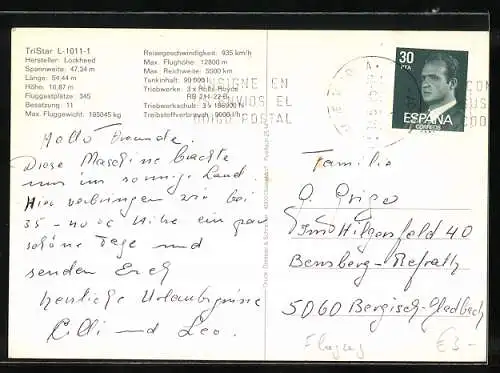 TriStar L-1011-1
Hersteller: Lockheed
Spannweite: 47,34 m
Länge: 54,44 m
Höhe: 16,87 m
Fluggestplätze: 345
Besatzung: 11
Max. Fluggewicht: 195045 kg
Reisegeschwindigkeit: 935 km/h
Max. Flughöhe: 12800 m
Max. Reichweite: 5500 km
Tankinhalt: 90 000 l
Triebwerke: 3 x Rolls-Royce
RB 211-22 B
Triebwerkschub: 3 x
Treibstoffverbrauch: 9000 l/h
CONSIGNE EN
ENVIOS EL
CODIGO POSTAL
30
PTA
ESPAÑA
CORREOS
Hallo Freunde.
Diese Maschine brachte
uns im sonnige Land.
Hier verbringen wir bei
35-40°C Hitze ein paar
schöne Tage und
senden Euch
herzliche Urlaubsgrüsse
Cilli und Leo.
Familie
G.
Im Hilgersfeld 40
Bensberg-Refrath
5060 Bergisch-Gladbach
Flugzeug
€3-